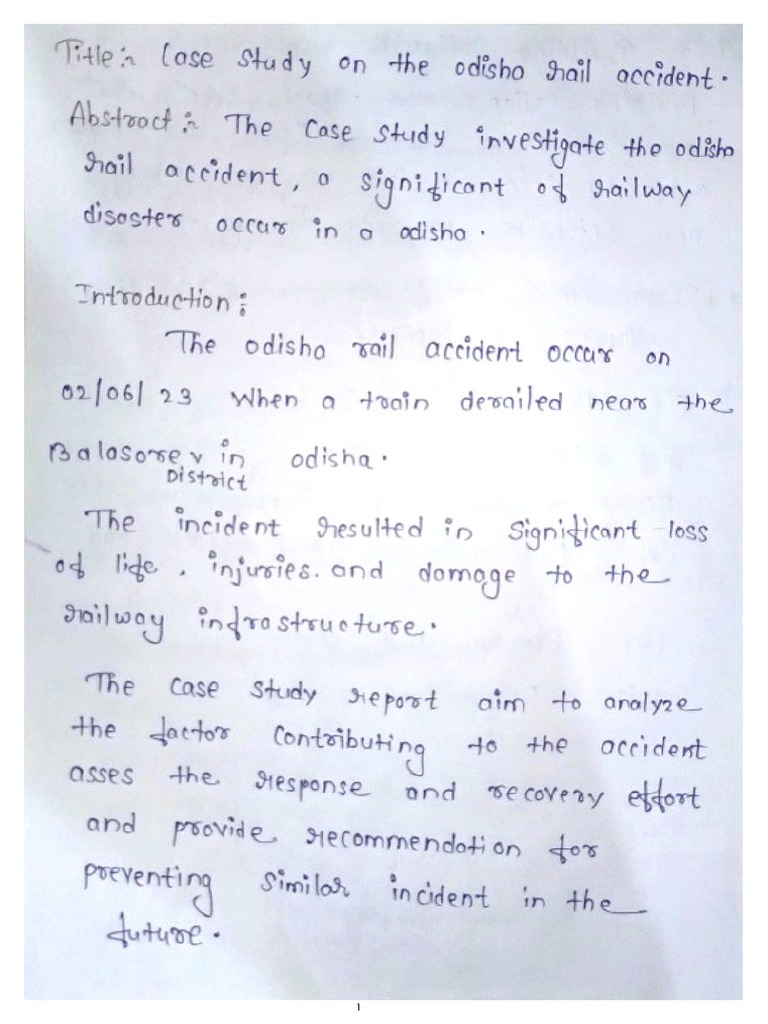 Title :- Case Study on the odisha rail accident.
Abstract :- The Case Study investigate the odisha
rail accident, a significant of railway
disaster occur in a odisha.
Introduction :
The odisha rail accident occur on
02/06/23 When a train derailed near the
Balasore v in odisha.
District
The incident resulted in significant loss
of life, injuries. and damage to the
railway infrastructure.
The case study report aim to analyze
the factor contributing to the accident
asses the response and recovery effort
and provide recommendation for
preventing similar incident in the
future.
1